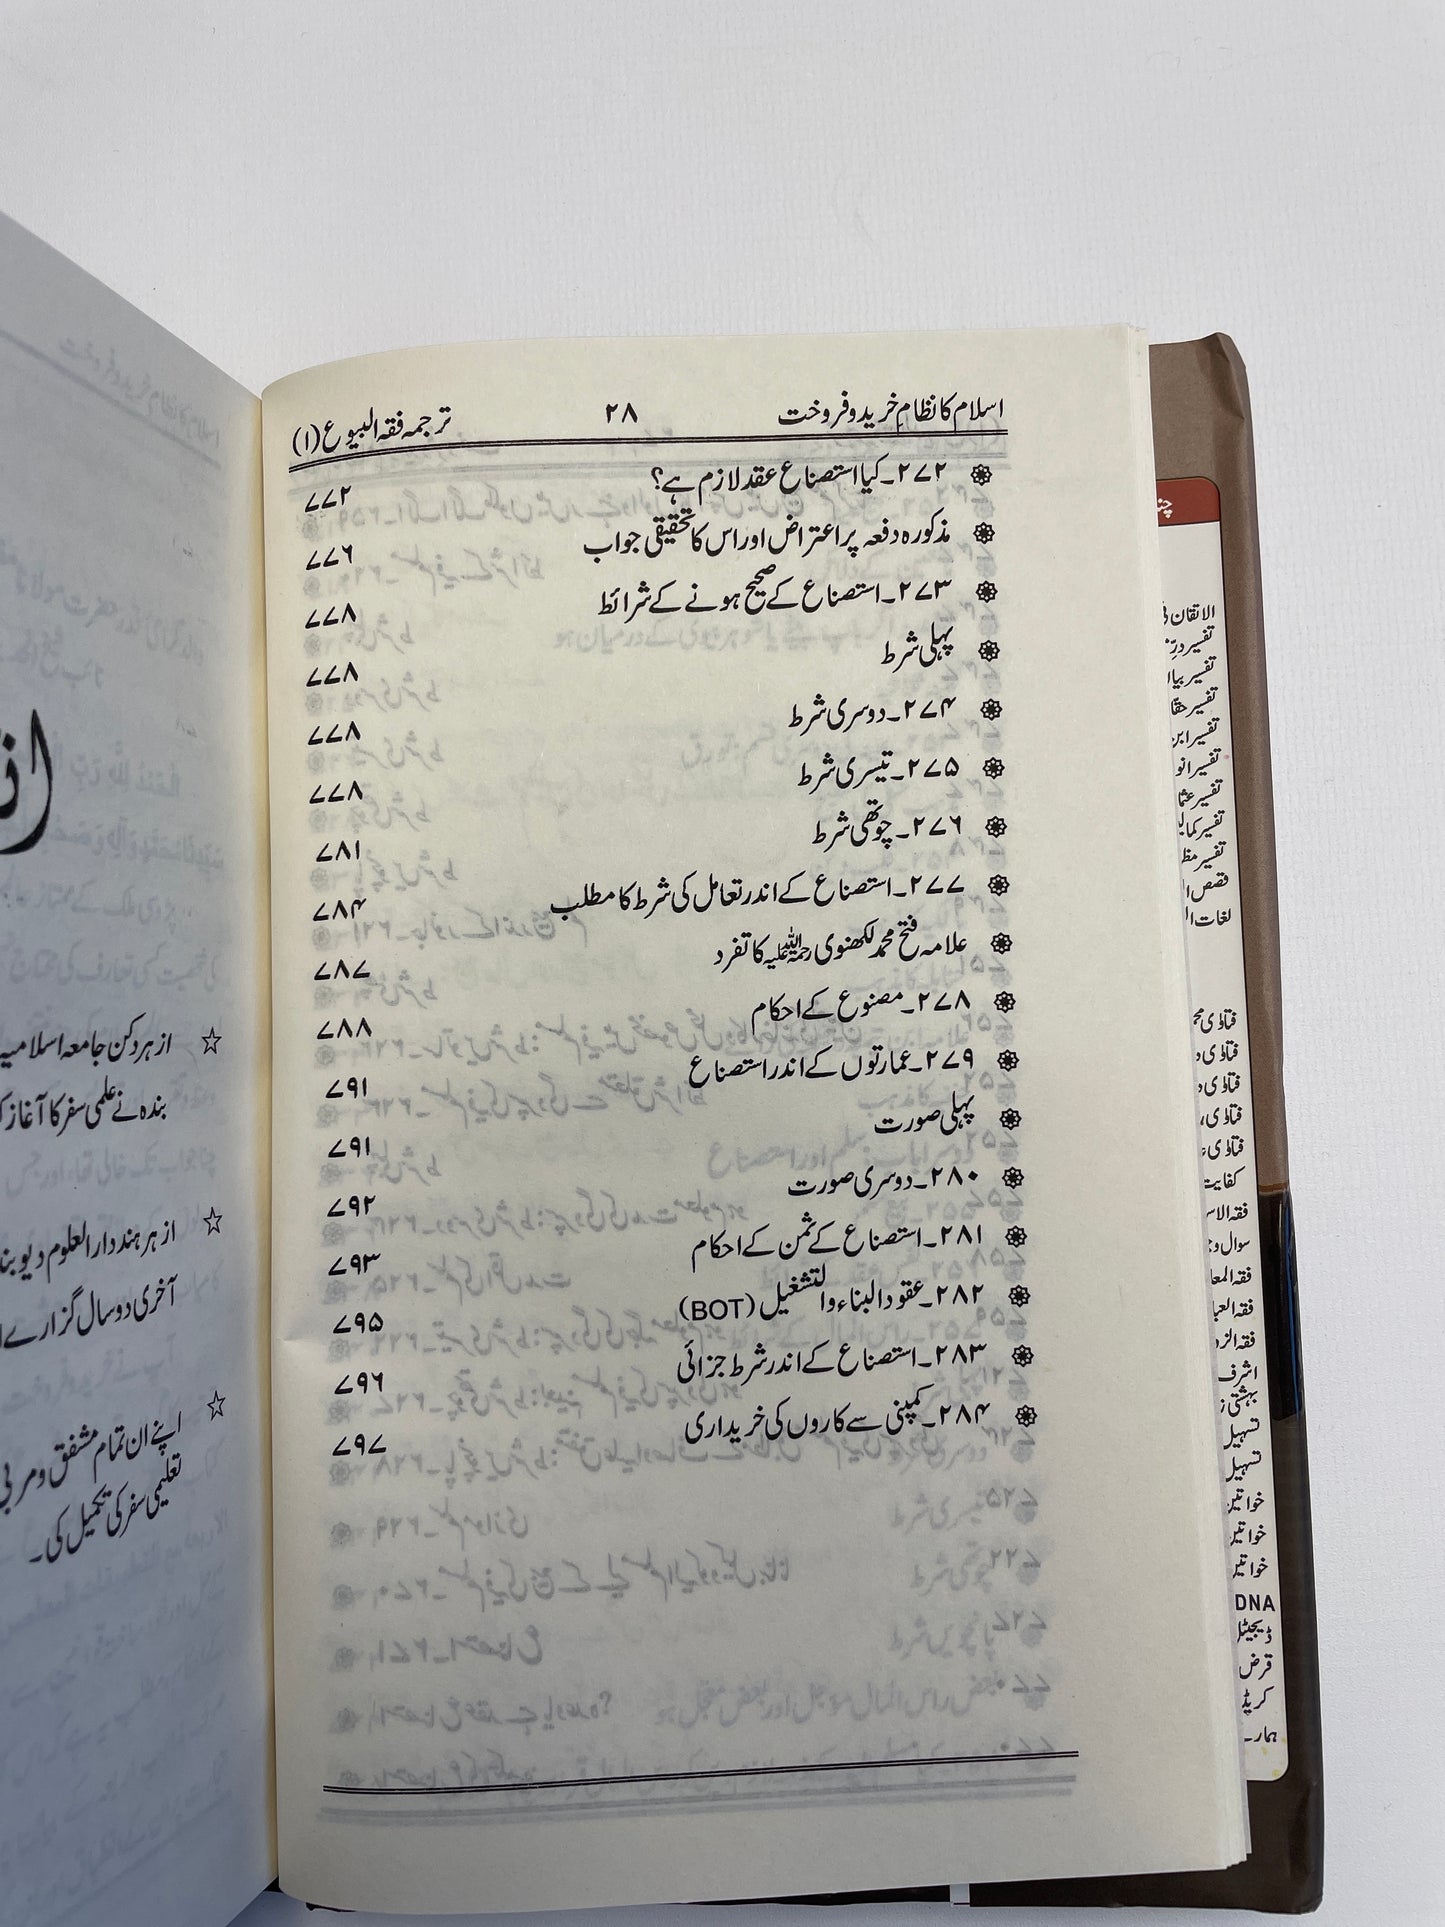 اسلام کا نظامِ خرید و فروخت ۲۸ ترجمہ فقہ البیوع (۱)
۲۷۲۔ کیا استصناع عقد لازم ہے؟ ۷۷۲
مذکورہ دفعہ پر اعتراض اور اس کا تحقیقی جواب ۷۷۶
۲۷۳۔ استصناع کے صحیح ہونے کے شرائط ۷۷۸
پہلی شرط ۷۷۸
۲۷۴۔ دوسری شرط ۷۷۸
۲۷۵۔ تیسری شرط ۷۷۸
۲۷۶۔ چوتھی شرط ۷۸۱
۲۷۷۔ استصناع کے اندر تعامل کی شرط کا مطلب ۷۸۴
علامہ فتح محمد لکھنوی رحمۃ اللہ علیہ کا تفرد ۷۸۷
۲۷۸۔ مصنوع کے احکام ۷۸۸
۲۷۹۔ عمارتوں کے اندر استصناع ۷۹۱
پہلی صورت ۷۹۱
۲۸۰۔ دوسری صورت ۷۹۲
۲۸۱۔ استصناع کے ثمن کے احکام ۷۹۳
۲۸۲۔ عقود البناء والتشغیل (BOT) ۷۹۵
۲۸۳۔ استصناع کے اندر شرط جزائی ۷۹۶
۲۸۴۔ کمپنی سے کاروں کی خریداری ۷۹۷
از ہر دکن جامعہ اسلامیہ
بندہ نے علمی سفر کا آغاز
از ہر ہند دار العلوم دیوبند
آخری دو سال گزارے
اپنے ان تمام مشفق و مربی
تعلیمی سفر کی تکمیل کی۔
الاتقان
تفسیر
تفسیر
تفسیر
تفسیر
تفسیر
تفسیر
تفسیر
تفسیر
قصص
لغات
فتاوی
فتاوی
فتاوی
فتاوی
فتاوی
کفایت
فقہ
سوال و
فقہ
فقہ
فقہ
اشرف
بہشتی
تسہیل
تسہیل
خواتین
خواتین
خواتین
DNA
ڈیجیٹل
قرض